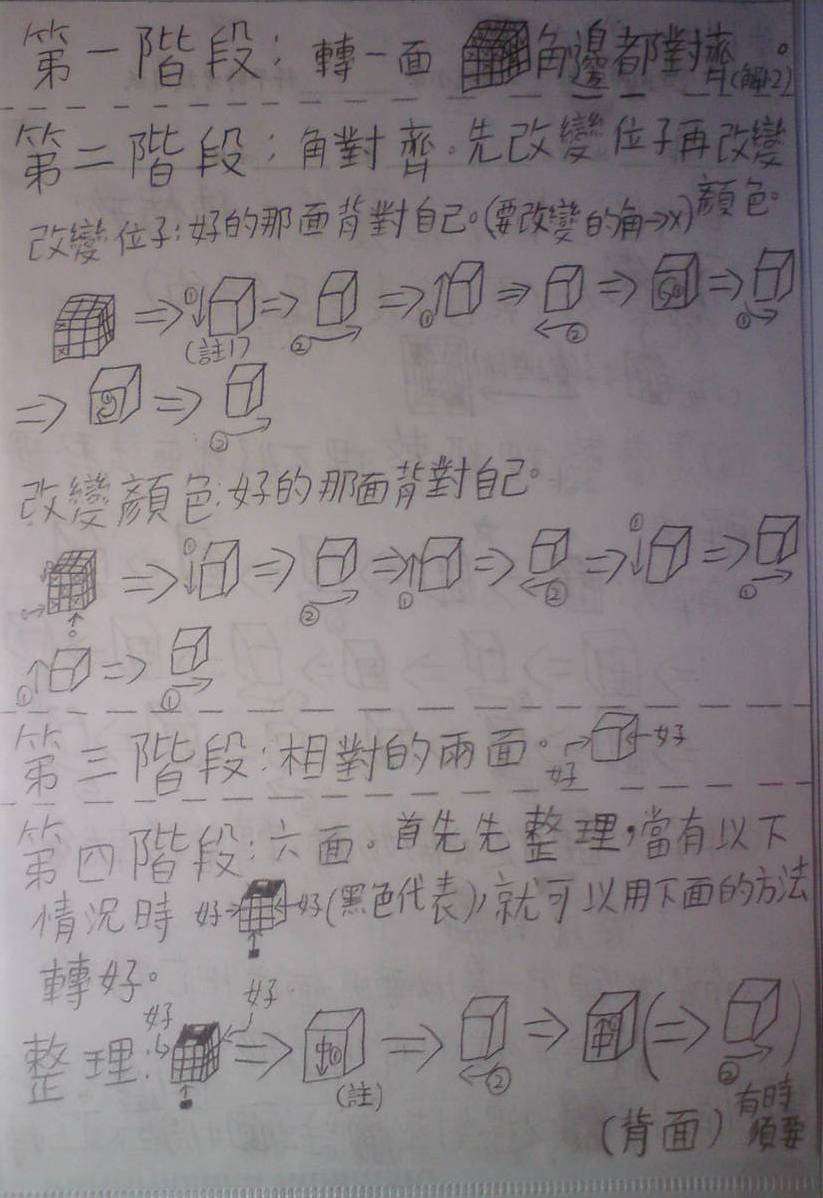 第一階段：轉一面 角邊都對齊。(解12)
第二階段：角對齊。先改變位子再改變
顏色。
改變位子：好的那面背對自己。(要改變的角→x)
x ⇒ ① ⇒ ② ⇒ ① ⇒ ② ⇒ ⇒ ①
(註1)
⇒ ⇒ ②
改變顏色：好的那面背對自己。
⇒ ① ⇒ ② ⇒ ① ⇒ ② ⇒ ① ⇒ ①
① ⇒ ①
第三階段：相對的兩面。好 好
第四階段：六面。首先先整理，當有以下
情況時 好 好(黑色代表)，就可以用下面的方法
轉好。
好 好
整理： ⇒ ⇒ ② ⇒ (⇒ ②)
(註)
(背面) 有時
須要